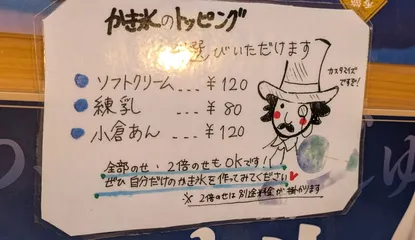 かき氷のトッピング
選びいただけます
ソフトクリーム... ¥120
練乳 ... ¥80
小倉あん... ¥120
カスタマイズ
ですぞ!
全部のせ、2倍のせもOKです!!
ぜひ自分だけのかき氷を作ってみてください♥
※2倍のせは別途料金が掛かります